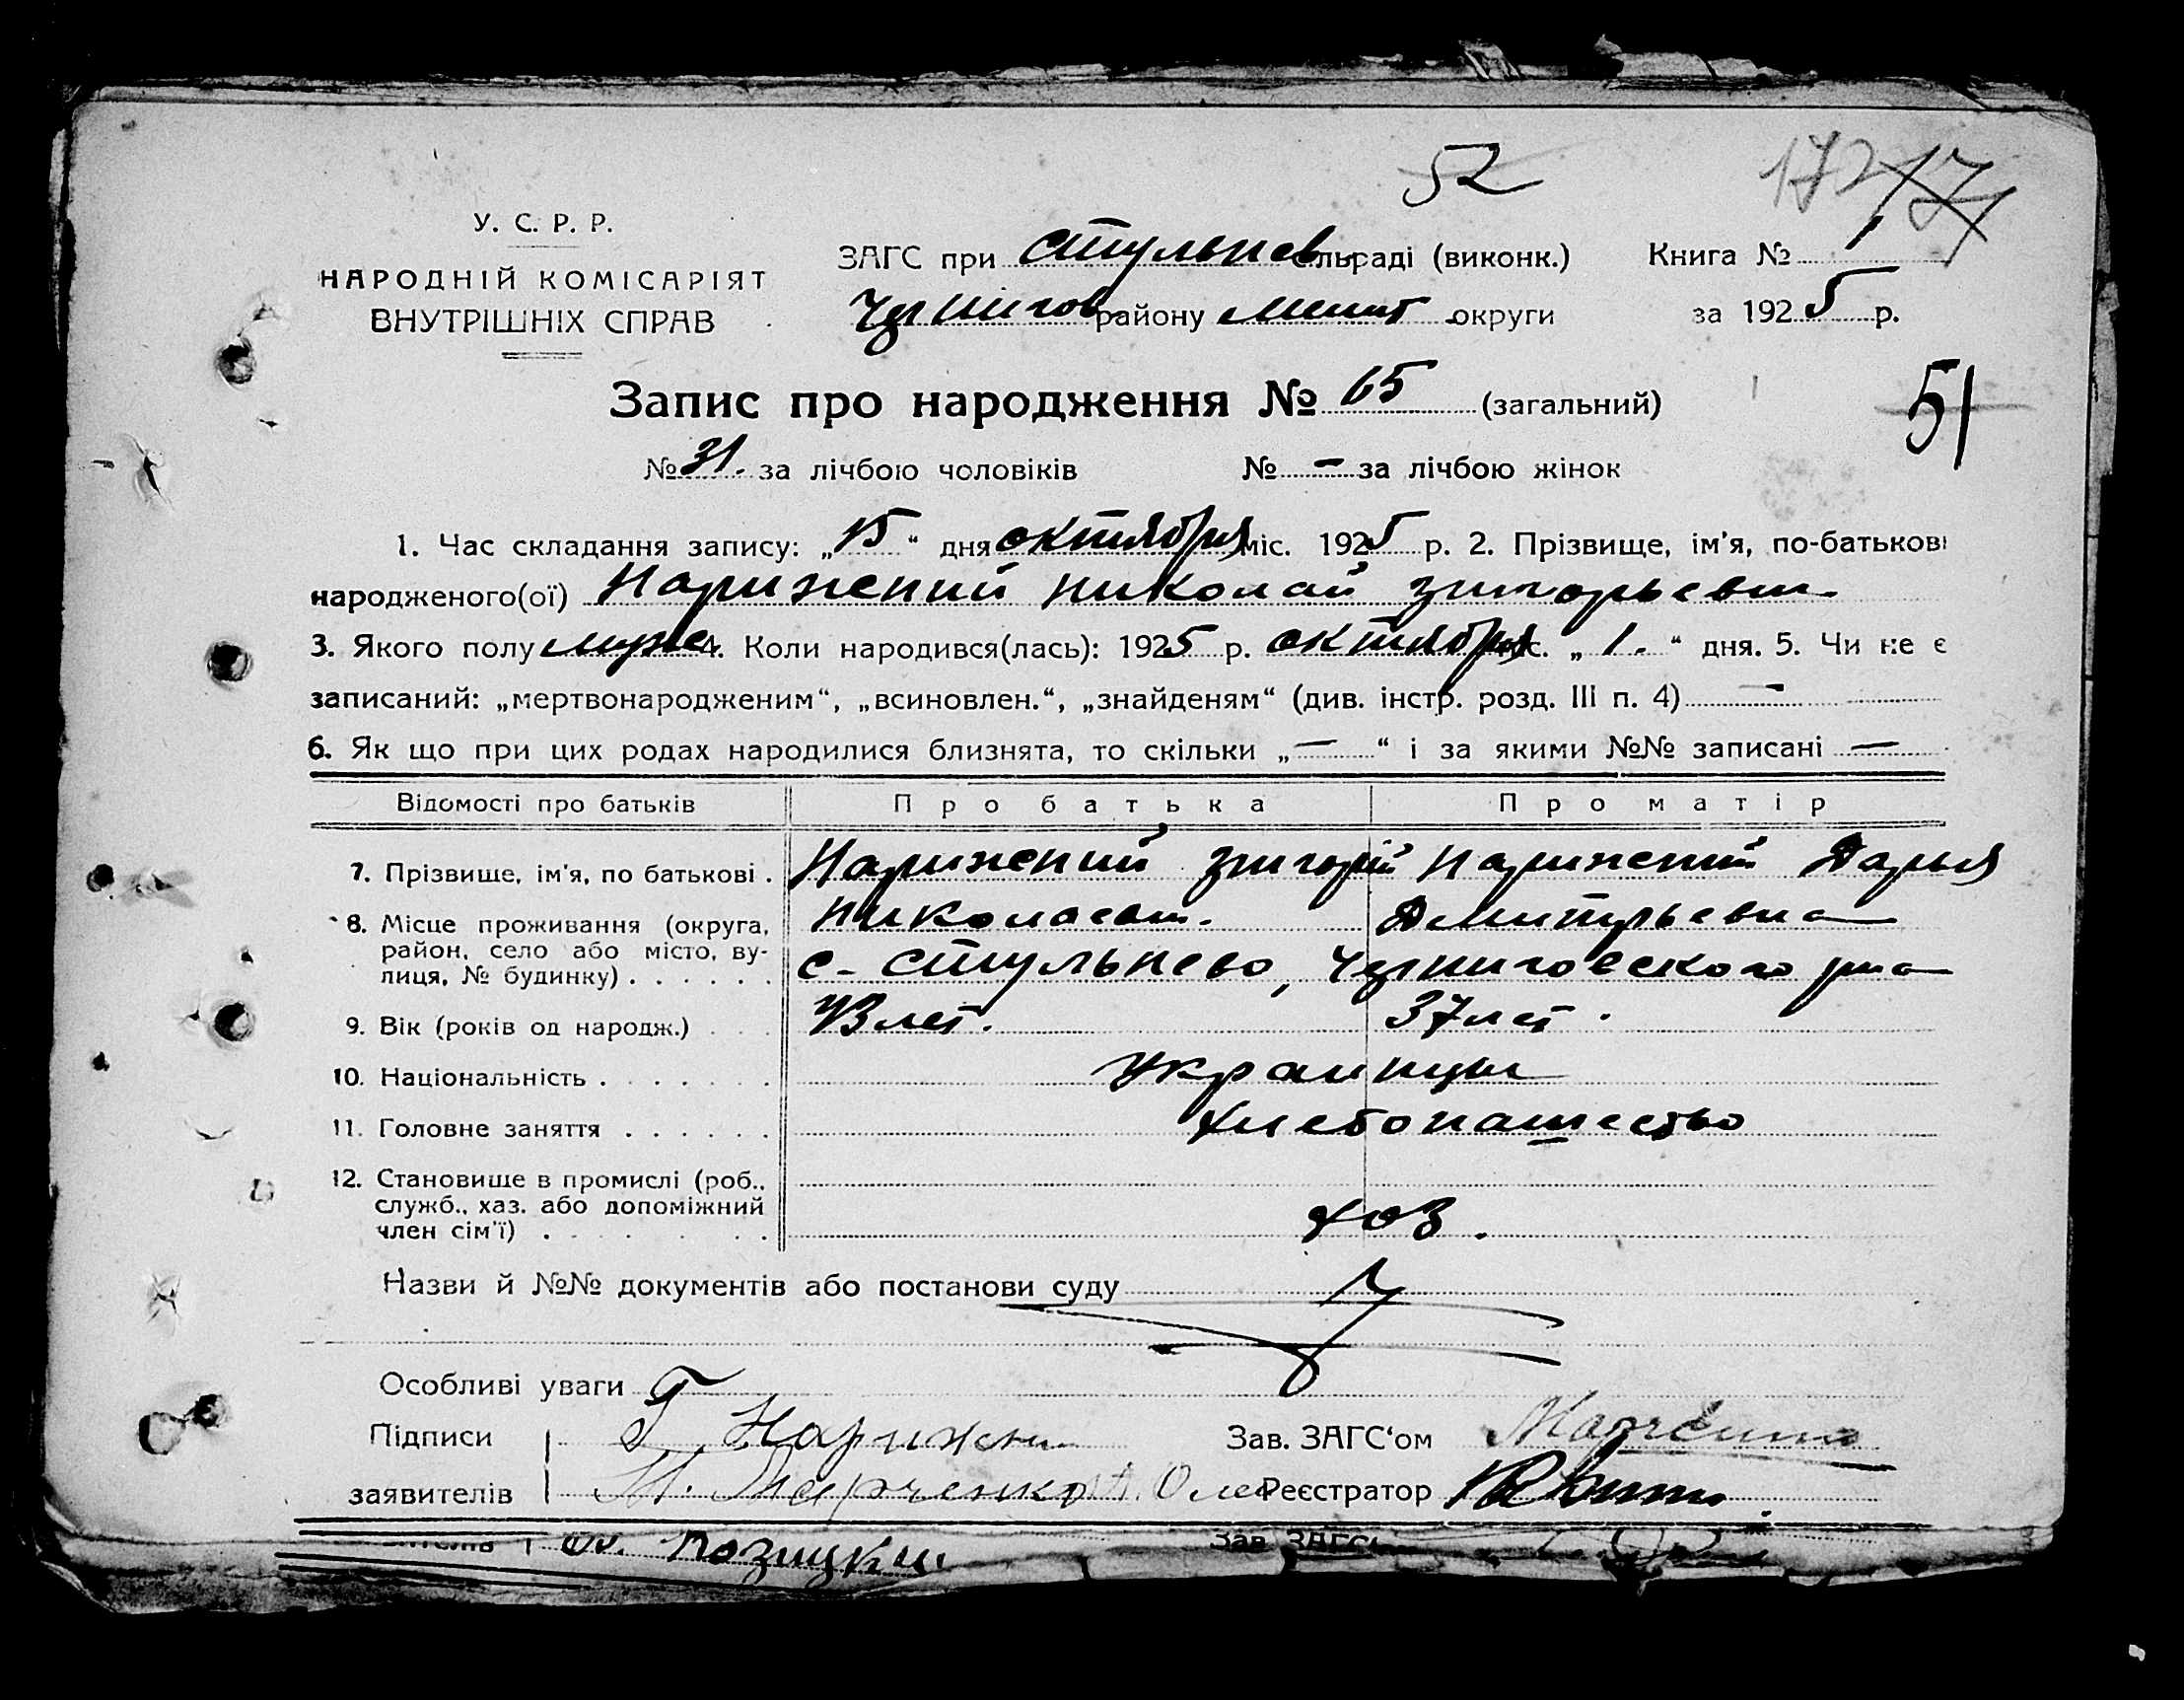 52
172 171
У. С. Р. Р.
НАРОДНІЙ КОМІСАРІЯТ
ВНУТРІШНІХ СПРАВ
ЗАГС при Стульнев сільраді (виконк.) Книга № 1
Черниговрайону Мелит округи за 1925 р.
Запис про народження № 65 (загальний)
51
№ 31. за лічбою чоловіків № — за лічбою жінок
1. Час складання запису: „15“ дня октября міс. 1925 р. 2. Прізвище, ім'я, по-батькові
народженого(ої) Нарижений Николай Григорьевич
3. Якого полу муже 4. Коли народився(лась): 1925 р. октября міс. „1.“ дня. 5. Чи не є
записаний: „мертвонародженим“, „всиновлен.“, „знайденям“ (див. інстр. розд. III п. 4) —
6. Як що при цих родах народилися близнята, то скільки „—“ і за якими №№ записані —
Відомості про батьків Про батька Про матір
7. Прізвище, ім'я, по батькові . Нарижений Григорій Нарижений Дарья
Николаевич. Дмитрьевна
8. Місце проживання (округа,
район, село або місто, ву-
лиця, № будинку) . . . . . . с-Стульнево, Черниговского р-на
9. Вік (років од народж.) 43 лет. 37 лет.
10. Національність . . . . . . . Украинцы
11. Головне заняття . . . . . . Хлебопашество
12. Становище в промислі (роб.,
служб., хаз. або допоміжний
член сім'ї) . . . . . . . Хоз.
Назви й №№ документів або постанови суду
Особливі уваги
Підписи Г Нарижн Зав. ЗАГС‘ом
заявителів М. Марченко Реєстратор
Зав. ЗАГС